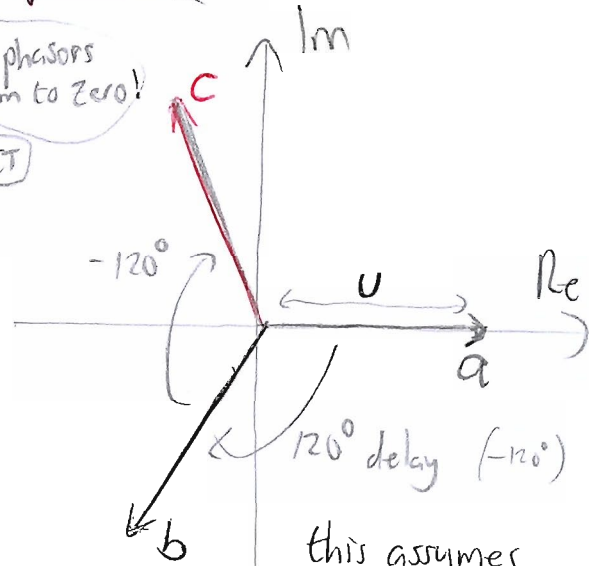 Im
phasors
m to zero!
CT
c
-120°
U
Re
a
120° delay (-120°)
b
this assumes